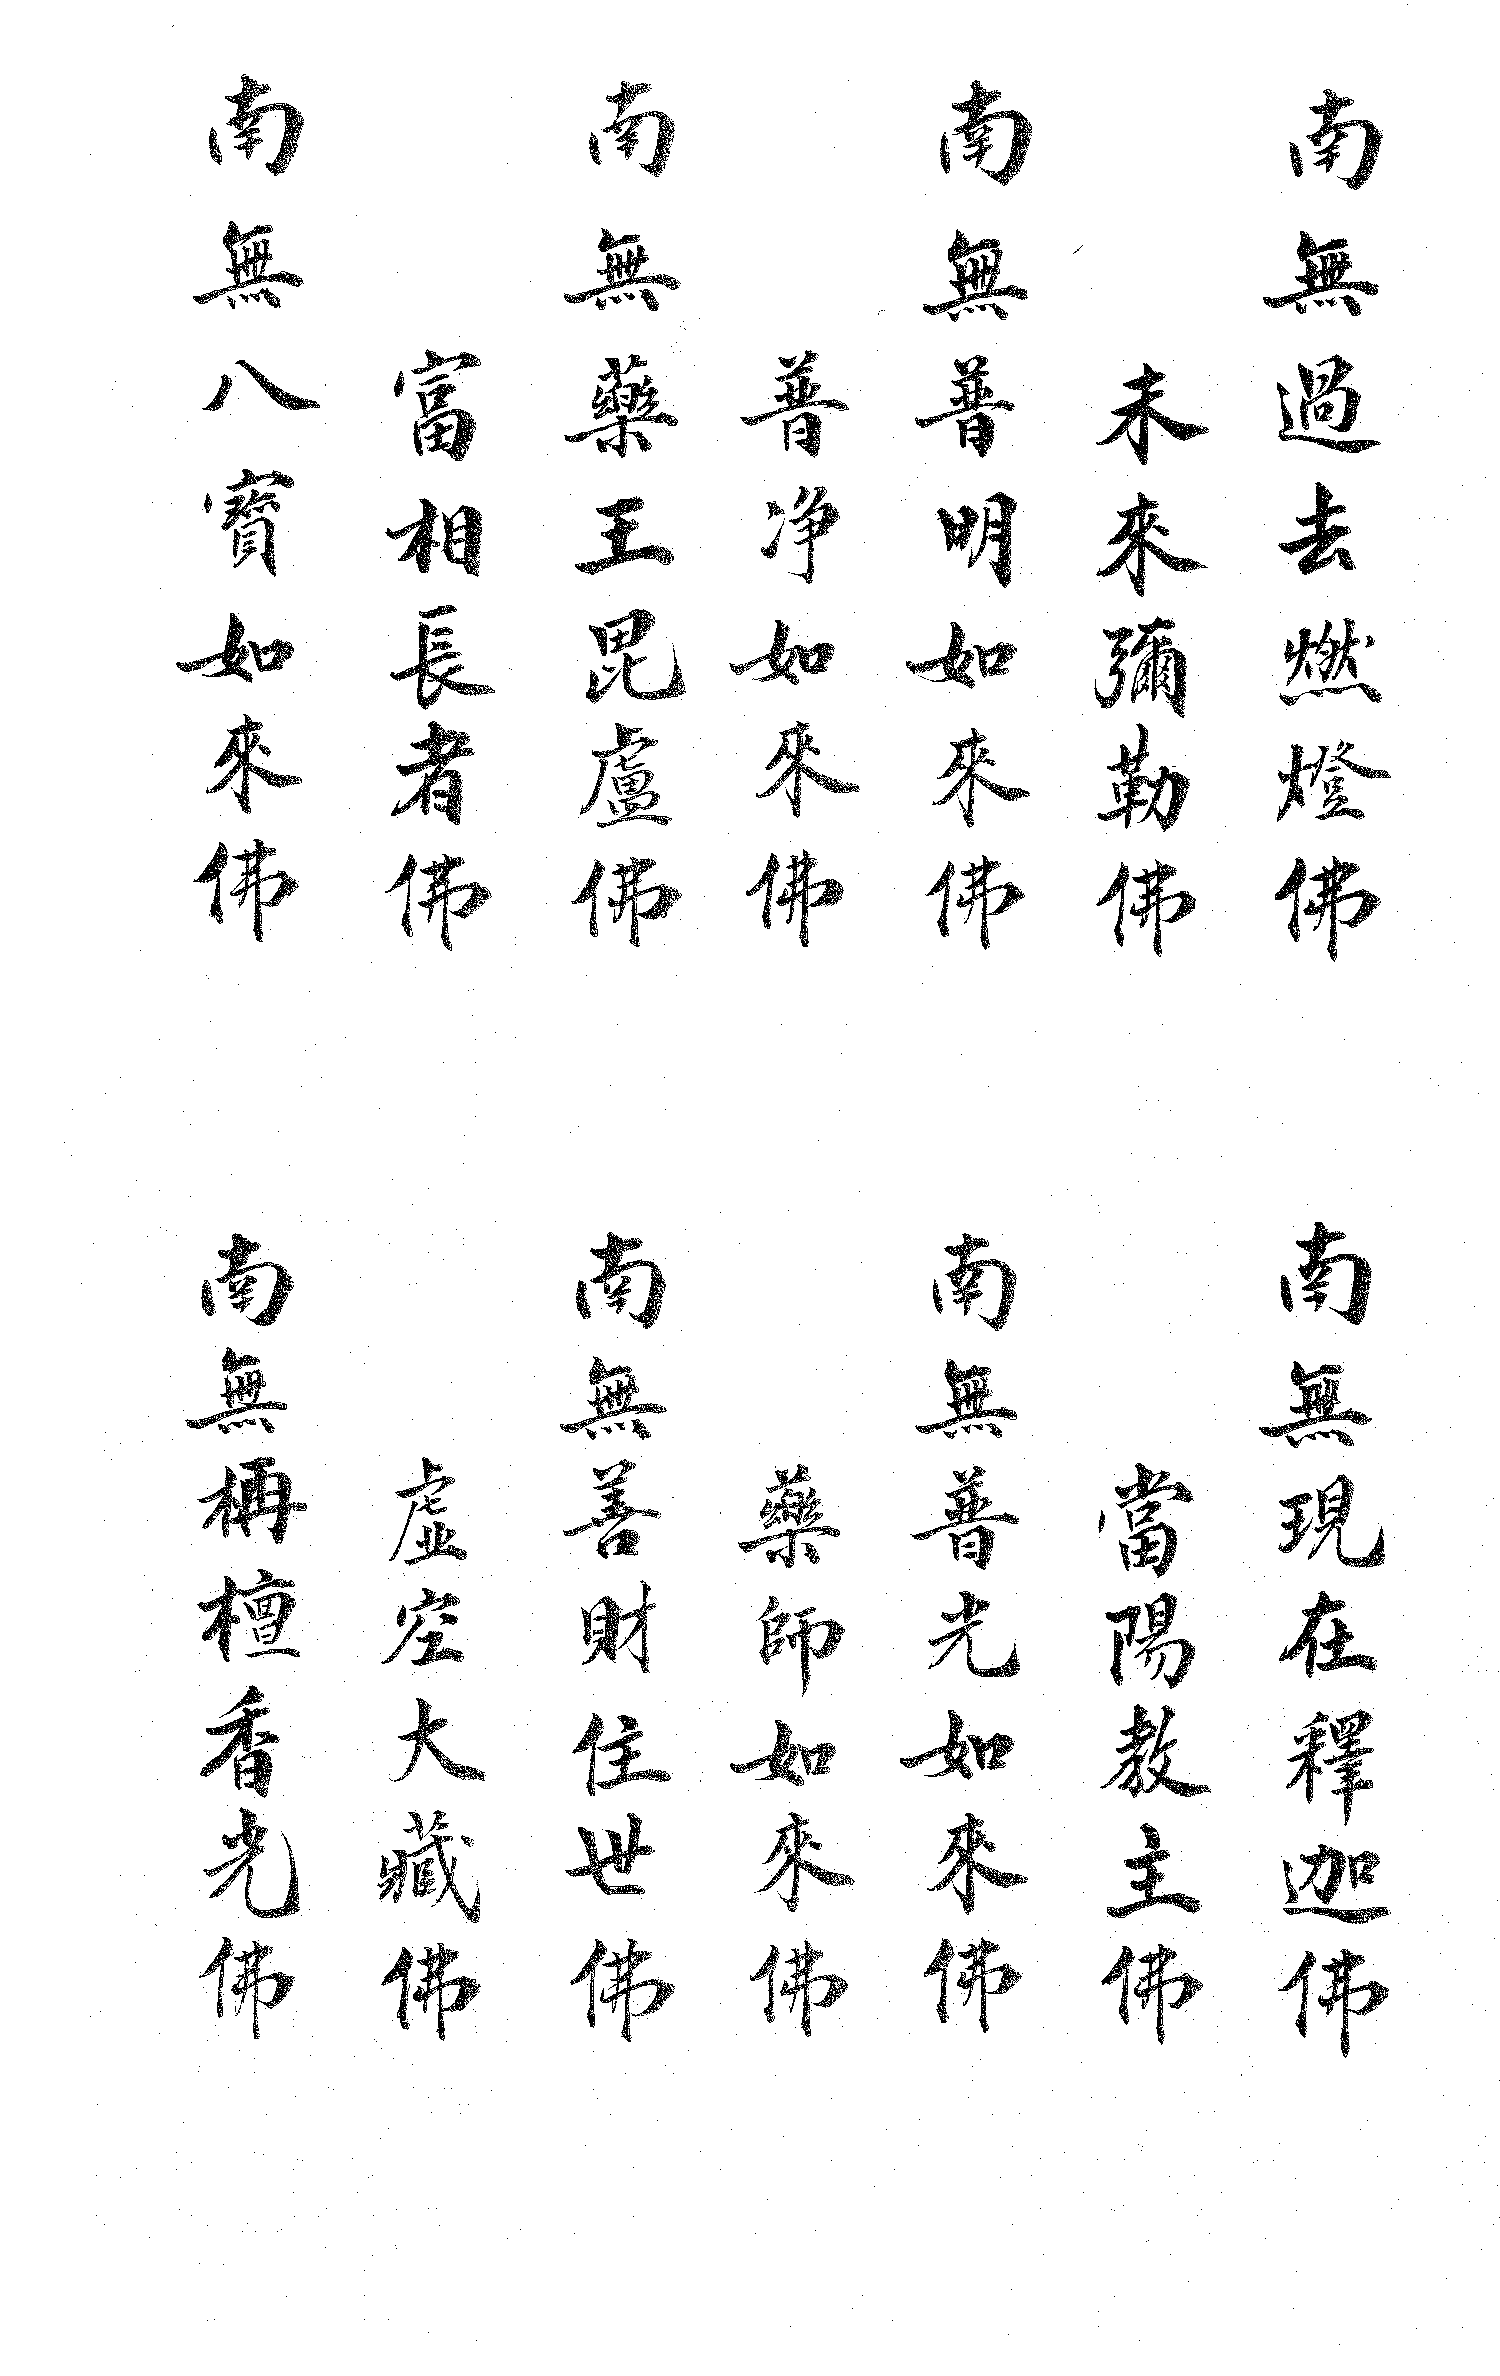 南無過去燃燈佛
未來彌勒佛
南無普明如來佛
普净如來佛
南無藥王毘盧佛
富相長者佛
南無八寶如來佛
南無現在釋迦佛
當陽教主佛
南無普光如來佛
藥師如來佛
南無善財住世佛
虛空大藏佛
南無栴檀香光佛